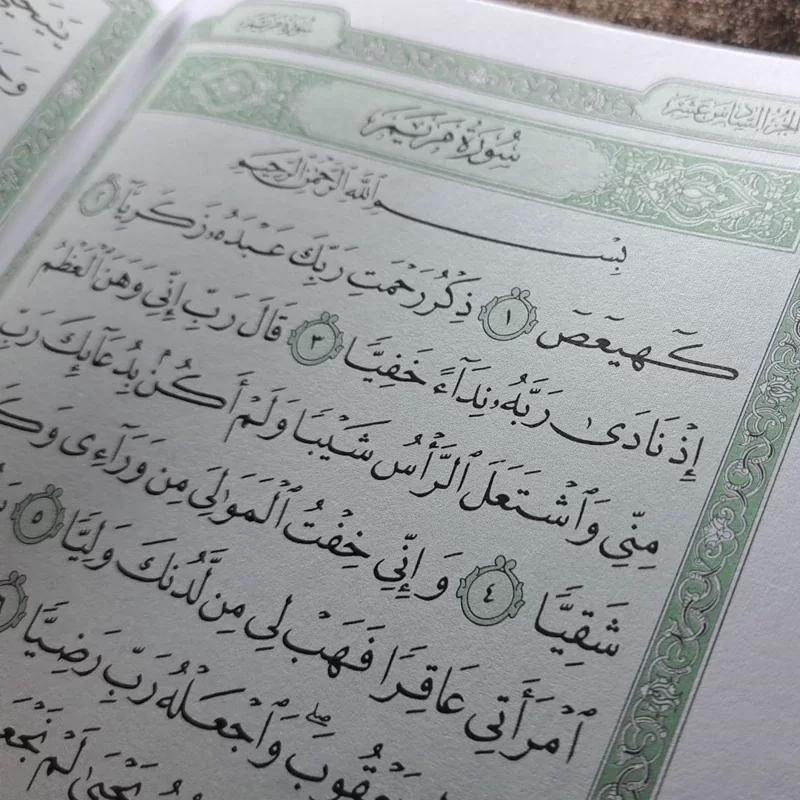 سُورَةُ مَرْيَمَ
الجُزْءُ السَّادِسَ عَشَرَ
سُورَةُ مَرْيَمَ
بِسْمِ ٱللَّهِ ٱلرَّحْمَٰنِ ٱلرَّحِيمِ
كٓهيعٓصٓ ١ ذِكْرُ رَحْمَتِ رَبِّكَ عَبْدَهُۥ زَكَرِيَّآ ٢
إِذْ نَادَىٰ رَبَّهُۥ نِدَآءً خَفِيًّا ٣ قَالَ رَبِّ إِنِّي وَهَنَ ٱلْعَظْمُ
مِنِّي وَٱشْتَعَلَ ٱلرَّأْسُ شَيْبًا وَلَمْ أَكُنۢ بِدُعَآئِكَ رَبِّ
شَقِيًّا ٤ وَإِنِّي خِفْتُ ٱلْمَوَٰلِيَ مِن وَرَآءِى
ٱمْرَأَتِي عَاقِرًا فَهَبْ لِي مِن لَّدُنكَ وَلِيًّا ٥
يَعْقُوبَۖ وَٱجْعَلْهُ رَبِّ رَضِيًّا ٦
يَحْيَىٰ لَمْ نَجْعَل